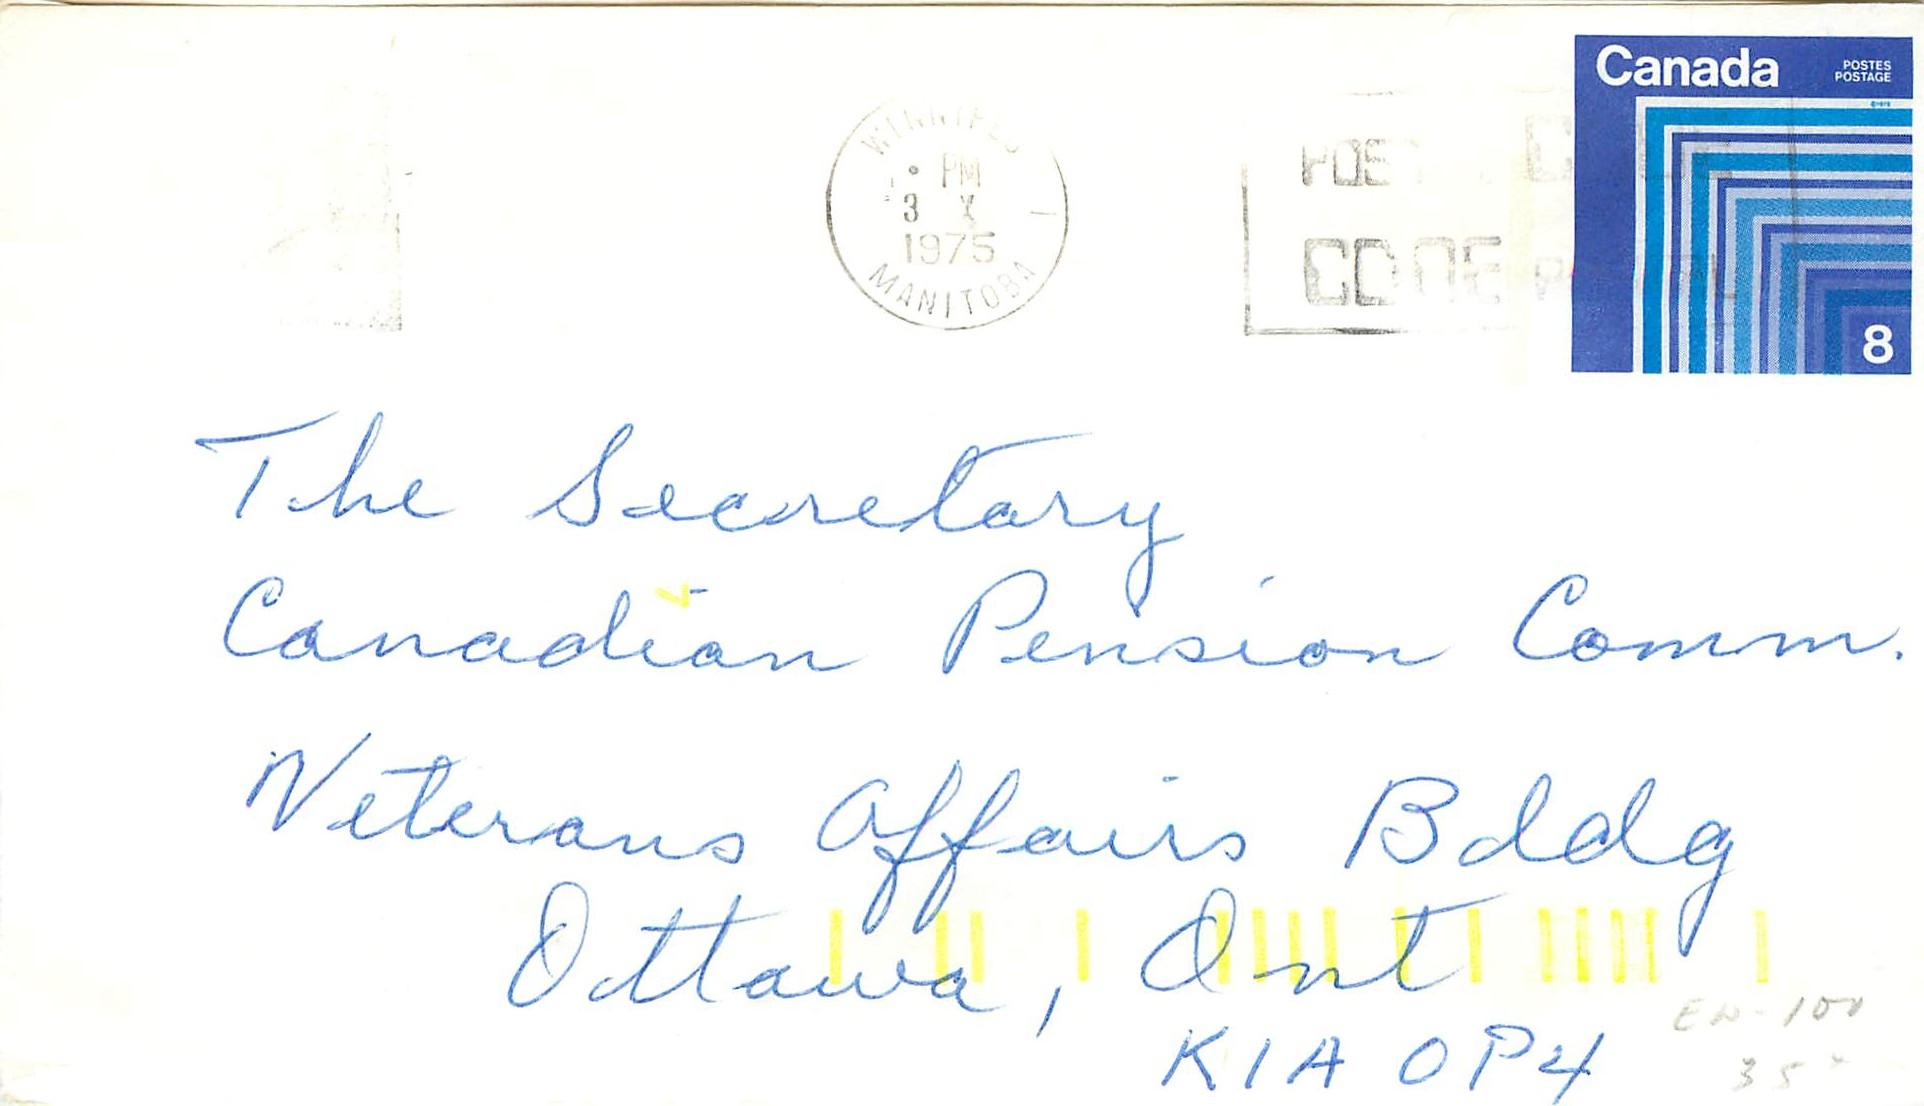 Canada
POSTES
POSTAGE
8
WINNIPEG
PM
3 X
1975
MANITOBA
POSTAL CODE
CODE POSTAL
The Secretary
Canadian Pension Comm.
Veterans Affairs Bldg
Ottawa, Ont
K1A 0P4
EN-100
35